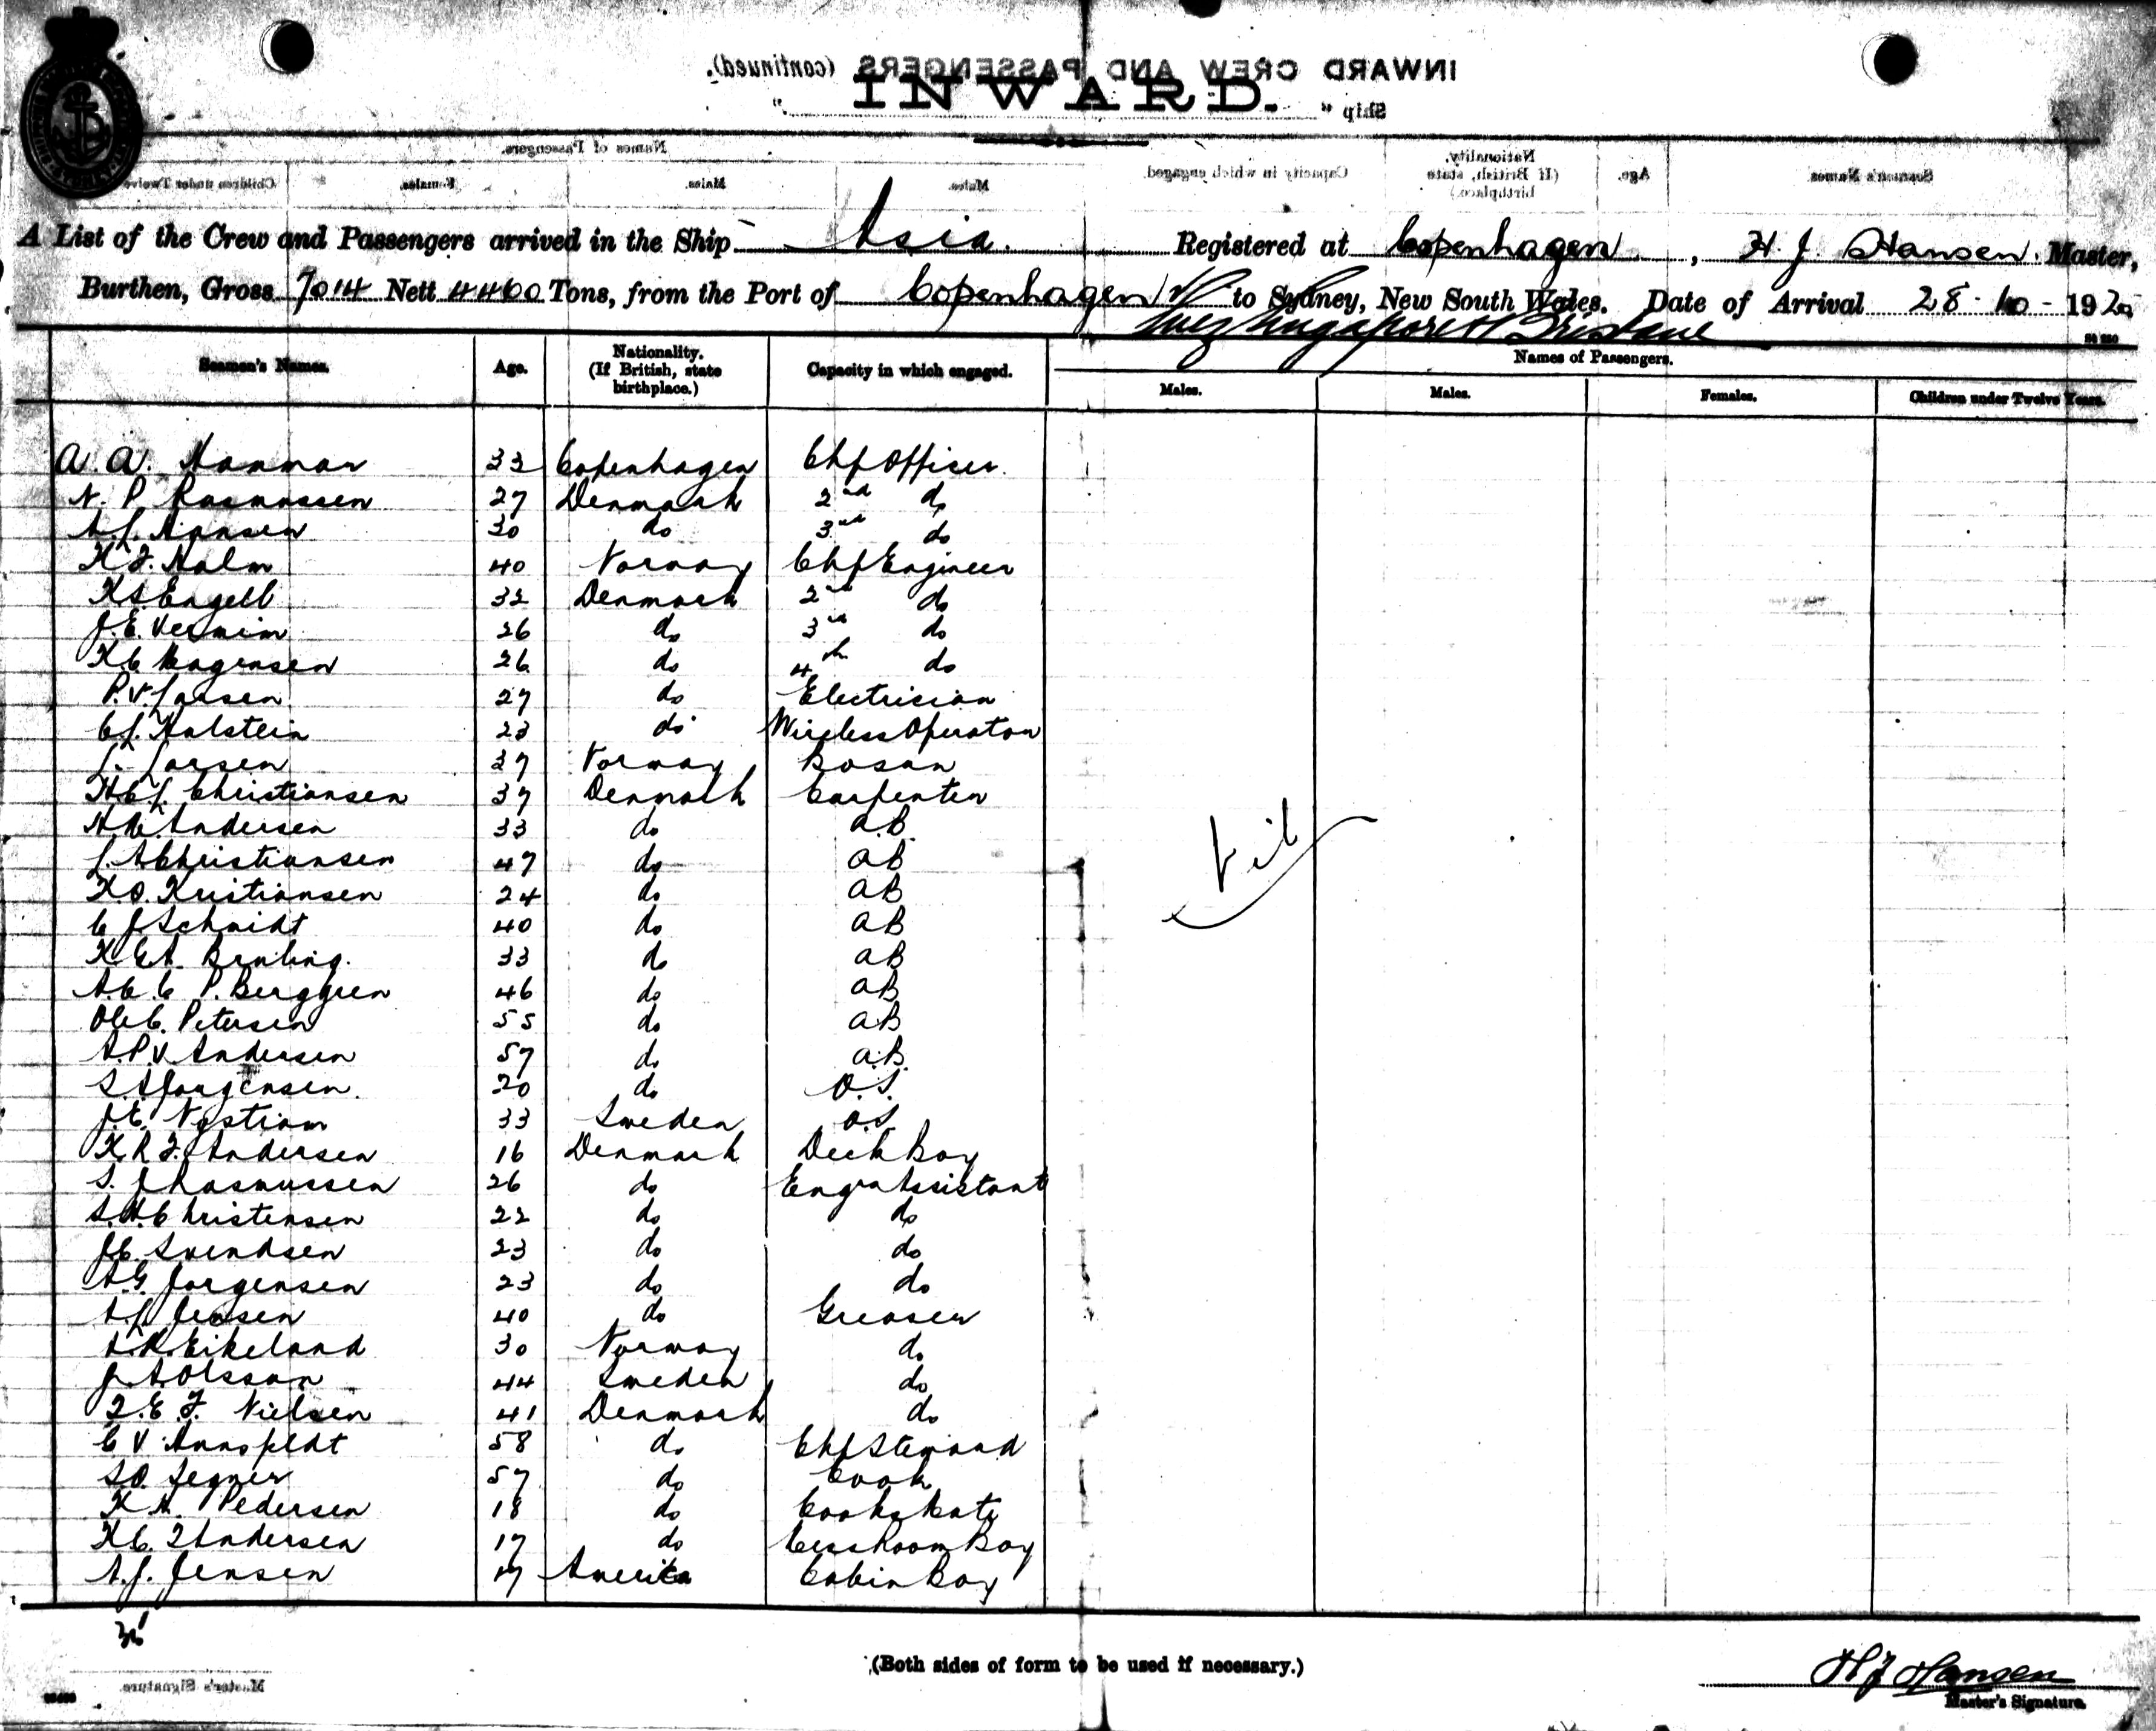 INWARD CREW AND PASSENGERS (continued).
INWARD.
Ship " "
Names of Passengers.
Children under Twelve Females. Males. Males. Capacity in which engaged. Nationality. (If British, state birthplace.) Age. Seamen's Names.
A List of the Crew and Passengers arrived in the Ship Asia. Registered at Copenhagen, H. J. Hansen. Master,
Burthen, Gross 7014 Nett 4460 Tons, from the Port of Copenhagen to Sydney, New South Wales. Date of Arrival 28-10-1920
Suez Singapore & Brisbane
Seamen's Names. Age. Nationality. (If British, state birthplace.) Capacity in which engaged. Names of Passengers.
Males. Males. Females. Children under Twelve Years.
A. A. Hammar 33 Copenhagen Chf Officer.
N. P. Rasmussen 27 Denmark 2nd do
Hansen 30 do 3rd do
Holm 40 Norway Chf Engineer
Engell 32 Denmark 2nd do
J. E. 26 do 3rd do
K C Mogensen 26 do 4th do
P. V. Larsen 27 do Electrician
C. L. Holstein 23 do Wireless Operator
L. Larsen 37 Norway Bosun
H C L Christiansen 37 Denmark Carpenter
Andersen 33 do A.B.
Christiansen 47 do AB
K O. Kristiansen 24 do AB
C J Schmidt 40 do AB
33 do AB
A. C. C P. Berggren 46 do AB
Ole C. Petersen 55 do AB
A. P. V. Andersen 57 do A.B.
Jorgensen. 20 do O.S.
J. E. 33 Sweden O.S.
K. R. F. Andersen 16 Denmark Deck Boy
S. J Rasmussen 26 do Engn Assistant
Christensen 22 do do
J C. Svendsen 23 do do
A G. Jorgensen 23 do do
A. L. Jensen 40 do Greaser
Eikeland 30 Norway do
J. A. Olsson 44 Sweden do
F. E. F. Nielsen 41 Denmark do
C V 58 do Chf Steward
Segner 57 do Cook
K A. Pedersen 18 do Cooks Mate
K C. F Andersen 17 do Messroom Boy
A. J. Jensen 17 America Cabin Boy
Nil
36
(Both sides of form to be used if necessary.)
H J Hansen
Master's Signature.
Master's Signature.